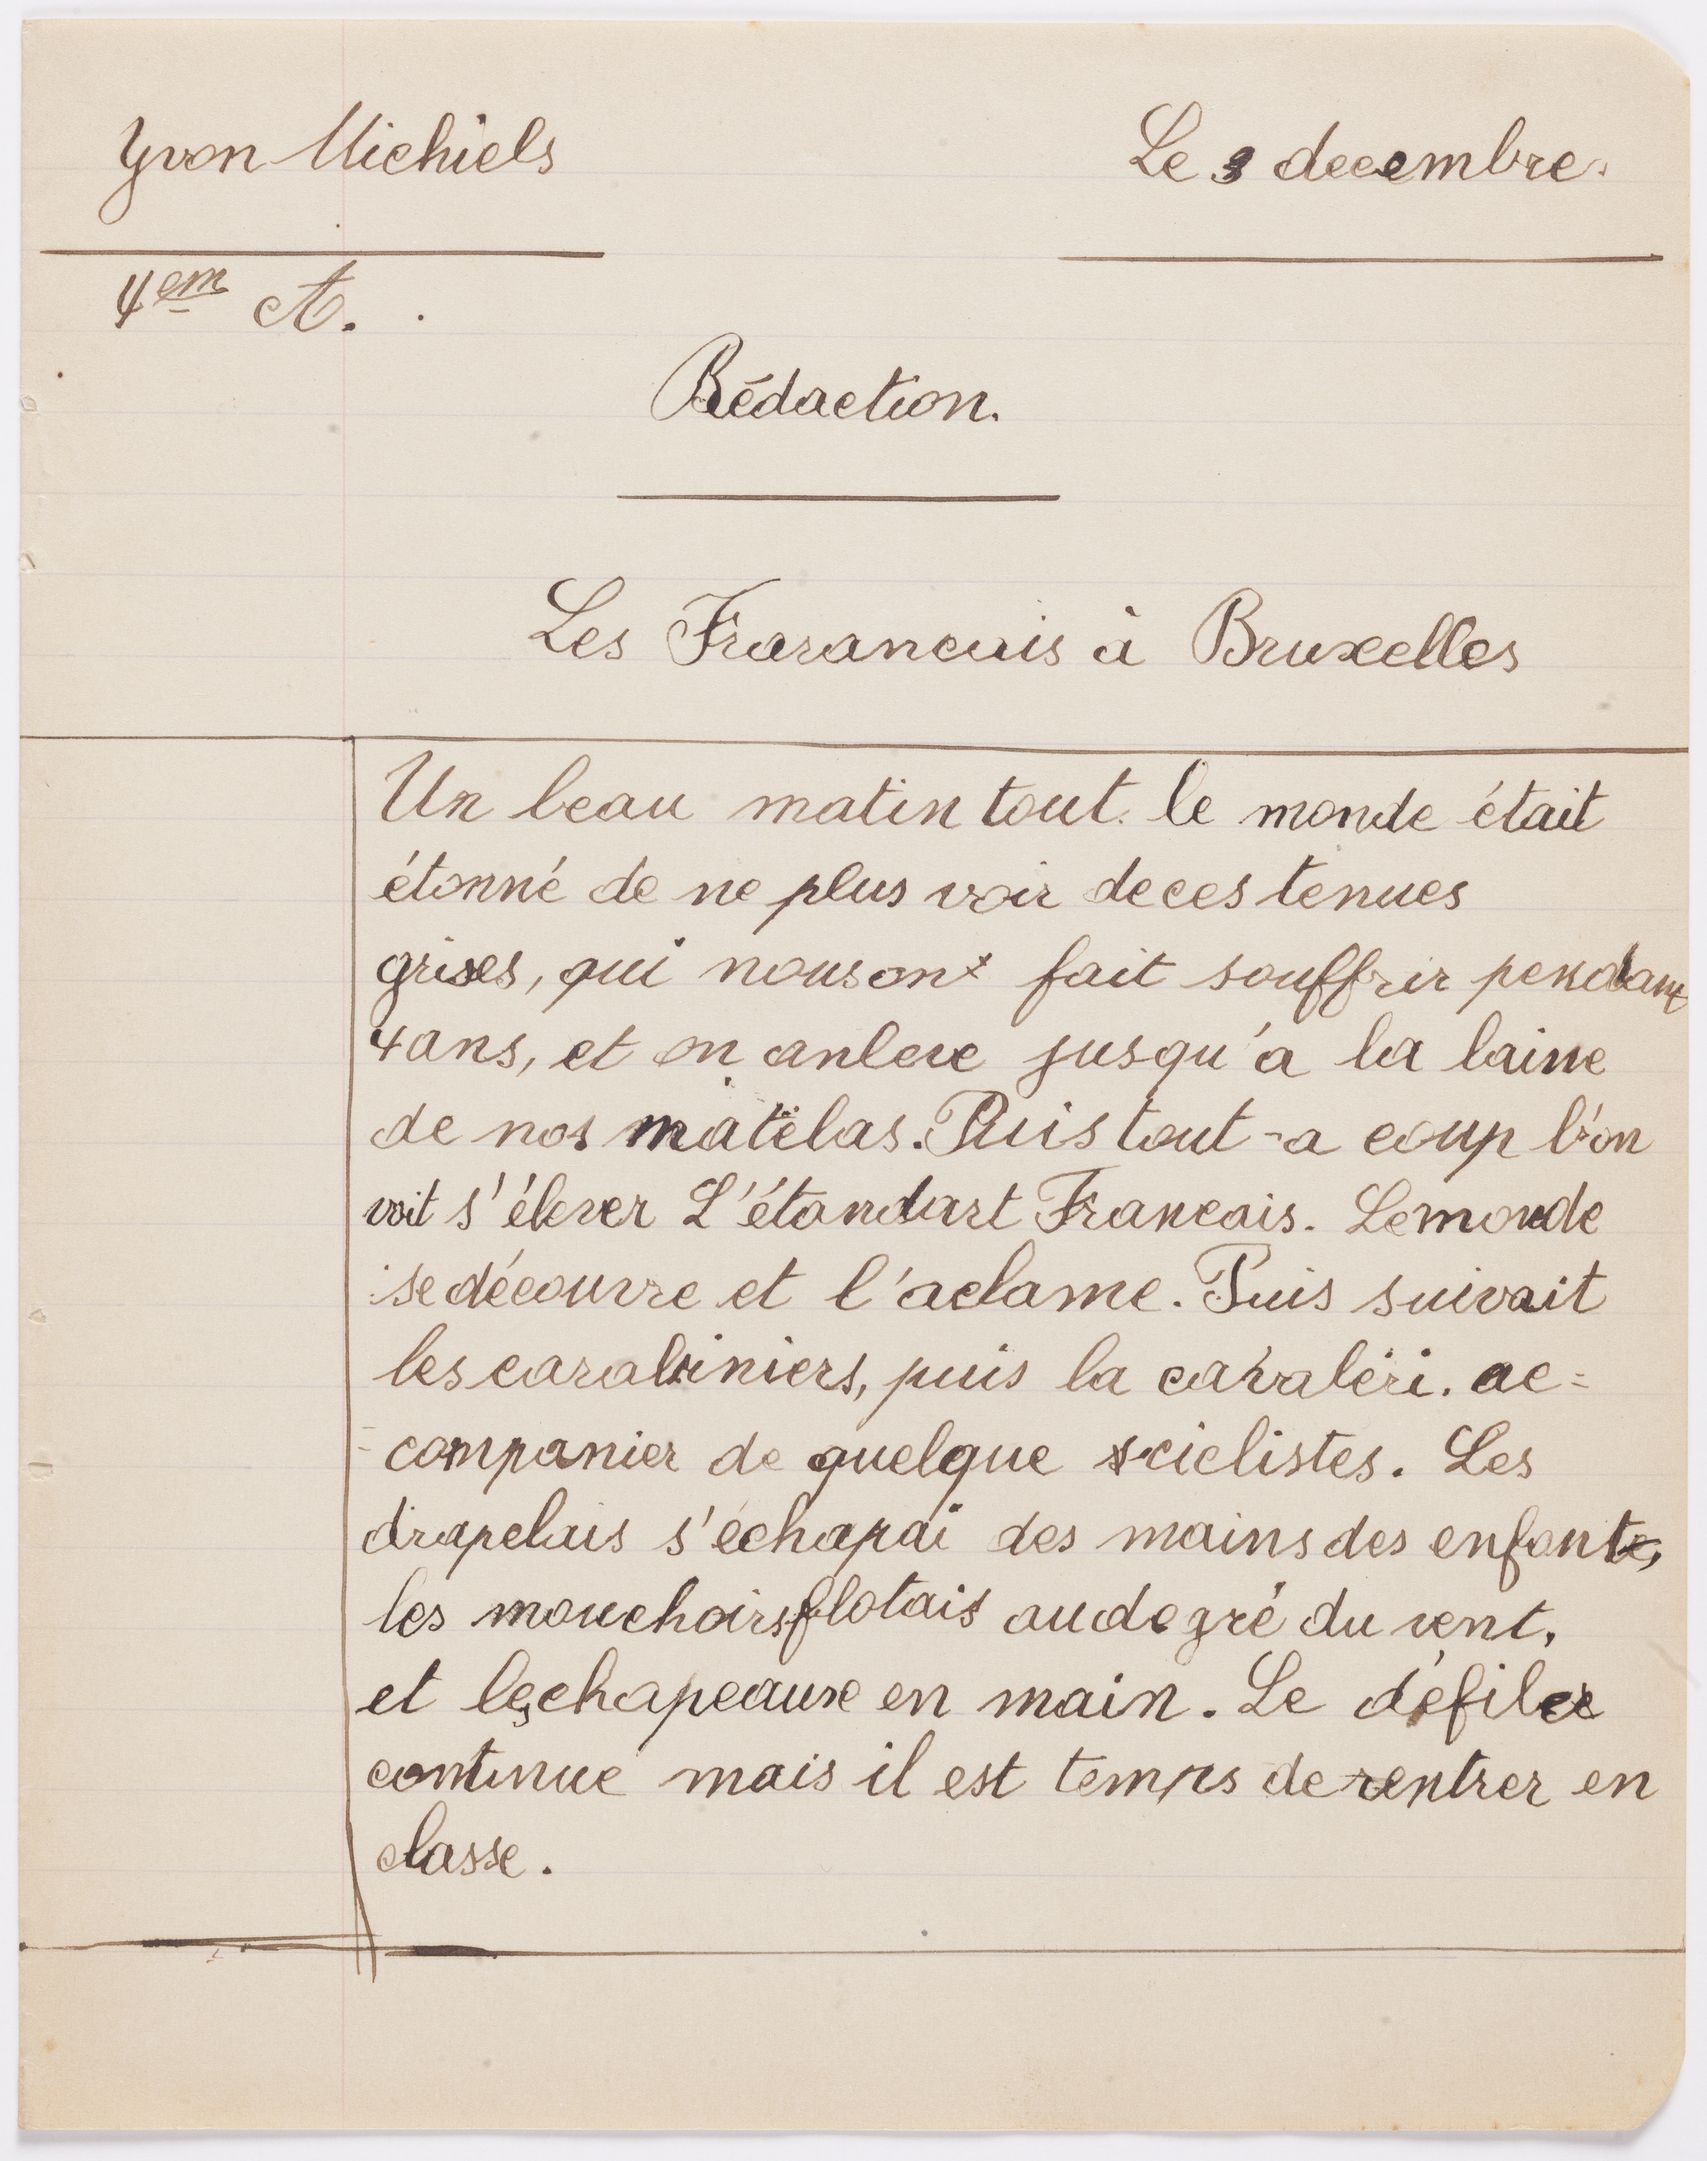 Yvon Michiels
Le 3 decembre.
4em A.
Rédaction.
Les Frarancais à Bruxelles
Un beau matin tout le monde était
étonné de ne plus voir de ces tenues
grises, qui nous ont fait souffrir pendant
4 ans, et on anleve jusqu'a la laine
de nos matelas. Puis tout-a coup l'on
voit s'élever L'étandart Francais. Le monde
se découvre et l'aclame. Puis suivait
les carabiniers, puis la cavaléri. ac=
=companier de quelque sciclistes. Les
drapeluis s'échapai des mains des enfants,
les mouchoirs flotais au de gré du vent,
et les chapeaux en main. Le défiler
continue mais il est temps de rentrer en
classe.